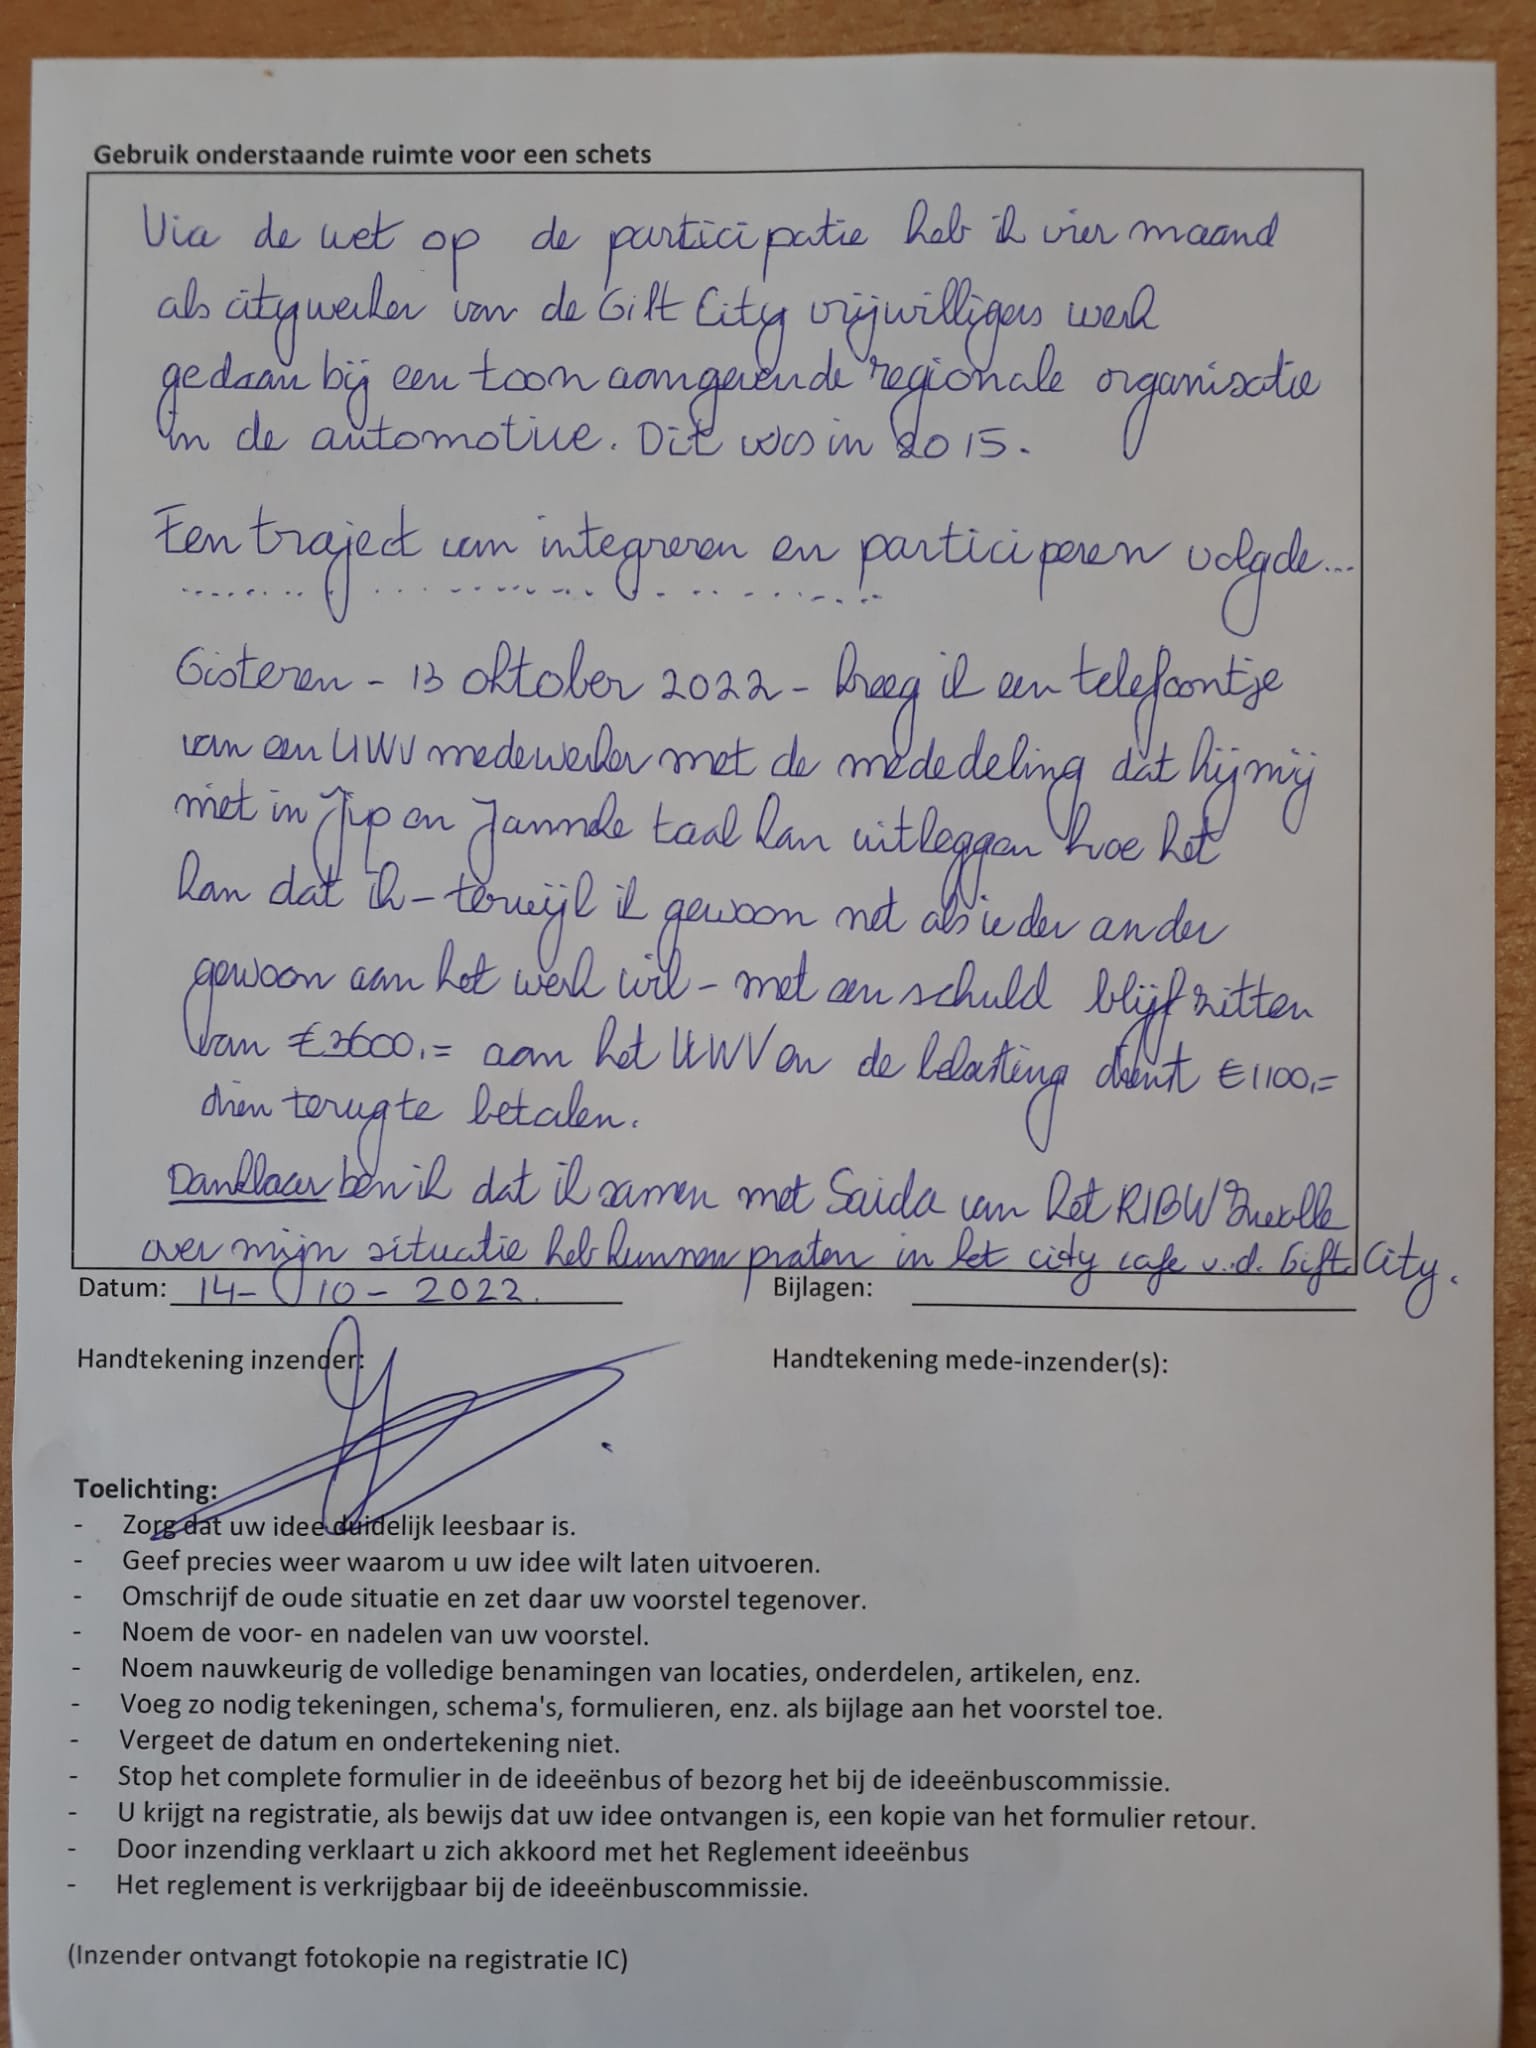 Gebruik onderstaande ruimte voor een schets
Via de wet op de participatie heb ik vier maand
als citywerker van de Gift City vrijwilligers werk
gedaan bij een toon aangevende regionale organisatie
in de automotive. Dit was in 2015.
Een traject van integreren en participeren volgde...
Gisteren - 13 oktober 2022 - kreeg ik een telefoontje
van een UWV medewerker met de mededeling dat hij mij
niet in Jip en Janneke taal kan uitleggen hoe het
kan dat ik - terwijl ik gewoon net als ieder ander
gewoon aan het werk wil - met een schuld blijf zitten
van €3600,= aan het UWV en de belasting dienst €1100,=
dien terug te betalen.
Dankbaar ben ik dat ik samen met Saida van het RIBW Zwolle
over mijn situatie heb kunnen praten in het city cafe v.d. Gift City.
Datum: 14-10-2022. Bijlagen:
Handtekening inzender: Handtekening mede-inzender(s):
Toelichting:
- Zorg dat uw idee duidelijk leesbaar is.
- Geef precies weer waarom u uw idee wilt laten uitvoeren.
- Omschrijf de oude situatie en zet daar uw voorstel tegenover.
- Noem de voor- en nadelen van uw voorstel.
- Noem nauwkeurig de volledige benamingen van locaties, onderdelen, artikelen, enz.
- Voeg zo nodig tekeningen, schema's, formulieren, enz. als bijlage aan het voorstel toe.
- Vergeet de datum en ondertekening niet.
- Stop het complete formulier in de ideeënbus of bezorg het bij de ideeënbuscommissie.
- U krijgt na registratie, als bewijs dat uw idee ontvangen is, een kopie van het formulier retour.
- Door inzending verklaart u zich akkoord met het Reglement ideeënbus
- Het reglement is verkrijgbaar bij de ideeënbuscommissie.
(Inzender ontvangt fotokopie na registratie IC)